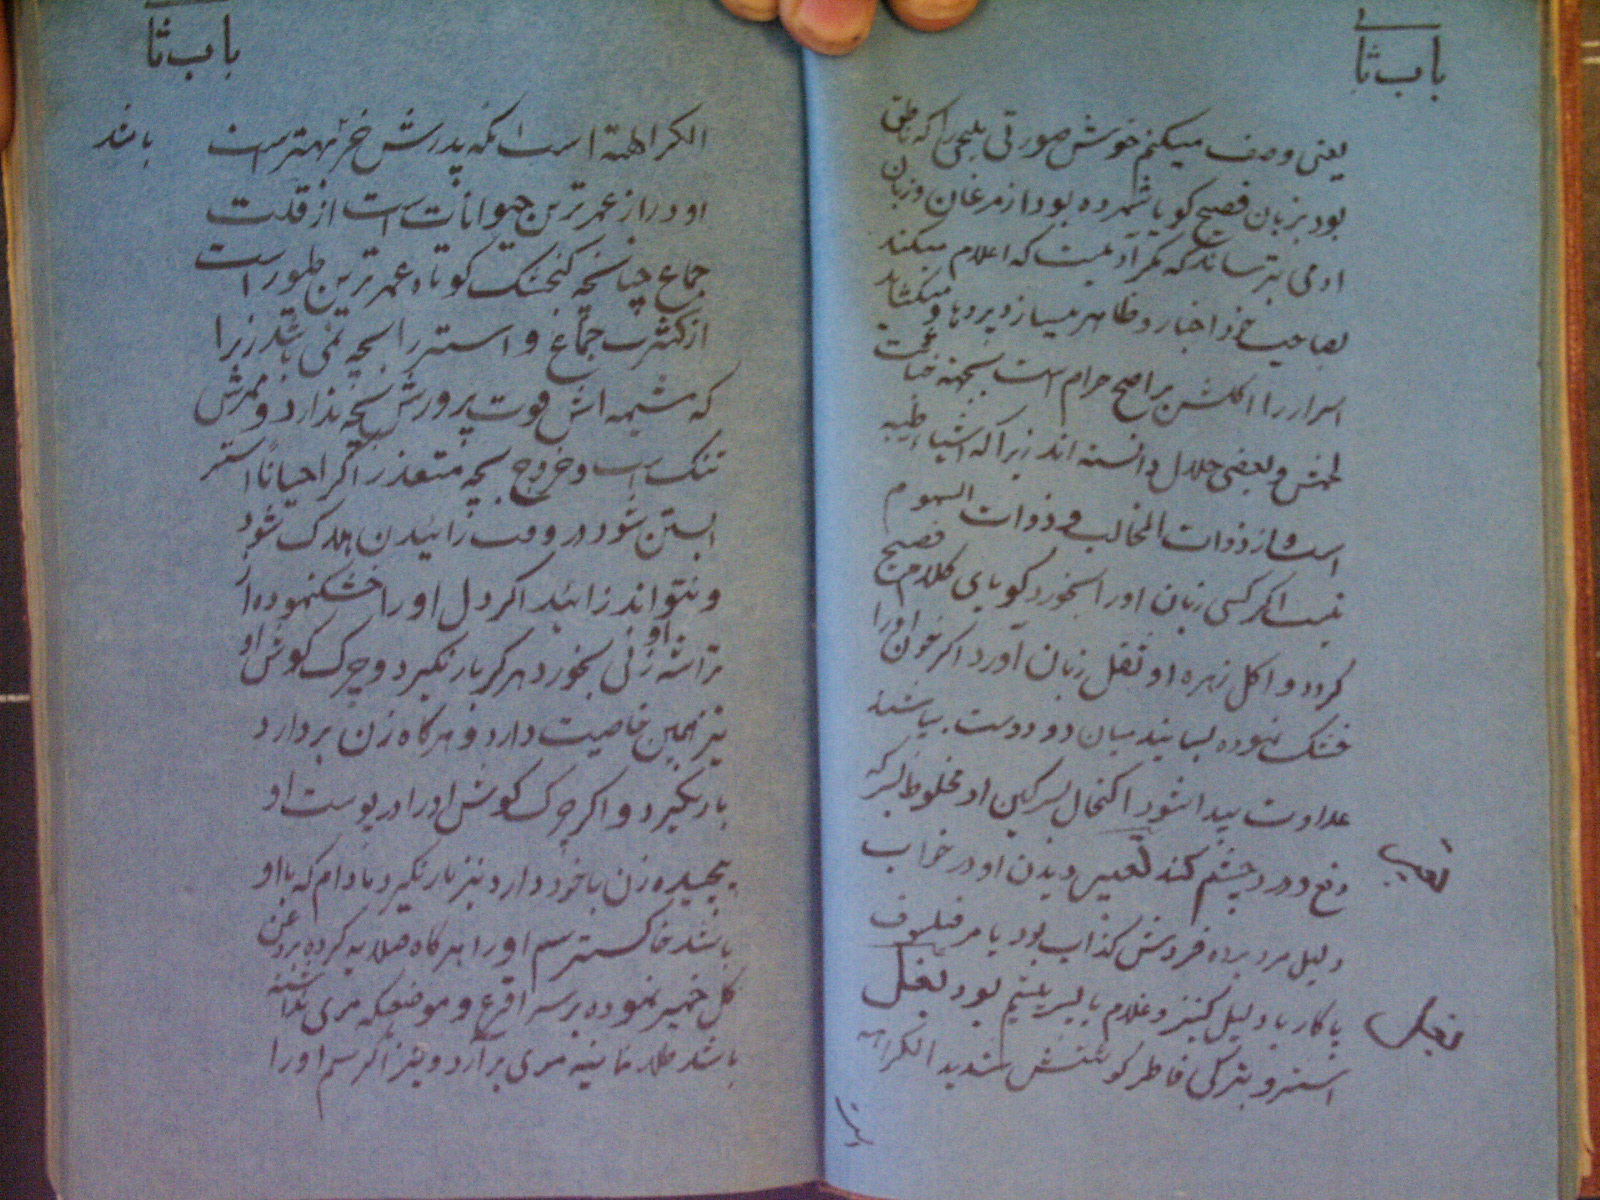 باب ثا
یعنی وصف میکنم خوش صورتی ملیحی را که ناطق
بود بزبان فصیح کویا شمرده بود از مرغان و زبان
ادمی بترساند که مکر آدمیت که اعلام میکند
بصاحب خود اخبار و ظاهر میسازد پردها و میکشاند
اسرار را اکلش بر اصح حرام است بجهته خباثت
لحمش و بعضی حلال دانسته اند زیرا که اشیاء طیبه
است و از ذوات المخالب و ذوات السموم
نیست اکر کسی زبان او را بخورد کویای کلام فصیح
کردد و اکل زهره او ثقل زبان آورد اکر خون او را
خشک نموده بسایند میان دو دوست بپاشند
عداوت پیدا شود اکتحال سرکین او مخلوط بسرکه
دفع درد چشم کند تعبیر دیدن او در خواب
دلیل مرد برده فروش کذاب بود یا مرد فیلسوف
یا کار یا دلیل کنیز و غلام یا پسر یتیم بود بغل
استر و بترکی قاطر کوشتش شدید الکراهه
تعبیر
بغل
است
باب ثا
الکراهته است انکه پدرش خر بهتر است باشد
او دراز عمر ترین حیوانات است از قلت
جماع چنانچه کنجشک کوتاه عمر ترین طیور است
از کثرت جماع و استر را بچه نمی باشد زیرا
که مشیمه اش قوت پرورش بچه ندارد و ممرش
تنک است و خروج بچه متعذر اکر احیانا استر
ابستن شود در وقت زائیدن هلاک شود
و نتواند زائید اکر دل او را خشک نموده
تراشه او زنی بخورد هرکز بار نکیرد و چرک کوش او
نیز همین خاصیت دارد و هرکاه زن بردارد
بار نکیرد و اکر چرک کوش او را در پوست او
پیچیده زن با خود دارد نیز بار نکیرد مادام که با او
باشد خاکستر سم او را هرکاه صلایه کرده بروغن
کل خمیر نموده بر سر اقرع و موضعیکه موی نداشته
باشد طلا نمایند موی برآرد و نیز اکر سم او را